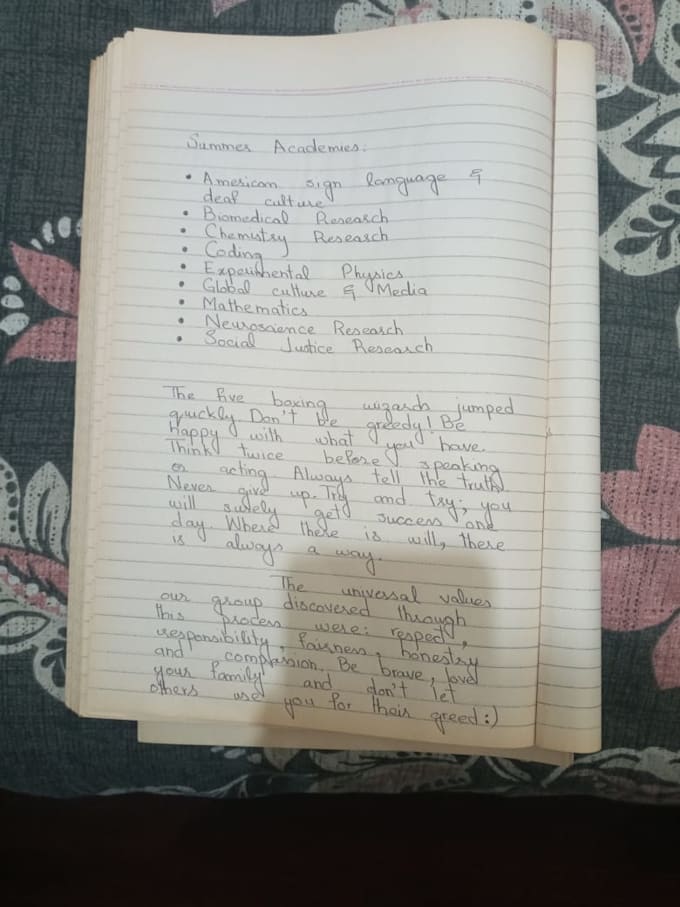 Summer Academies:
• American sign language &
deaf culture
• Biomedical Research
• Chemistry Research
• Coding
• Experimental Physics
• Global culture & Media
• Mathematics
• Neuroscience Research
• Social Justice Research
The five boxing wizards jumped
quickly. Don't be greedy! Be
Happy with what you have.
Think twice before speaking
or acting Always tell the truth
Never give up. Try and try; you
will surely get success one
day. Where there is will, there
is always a way.
The universal values
our group discovered through
this process were: respect,
responsibility, fairness, honestry
and compassion. Be brave, love
your family and don't let
others use you for their greed :)